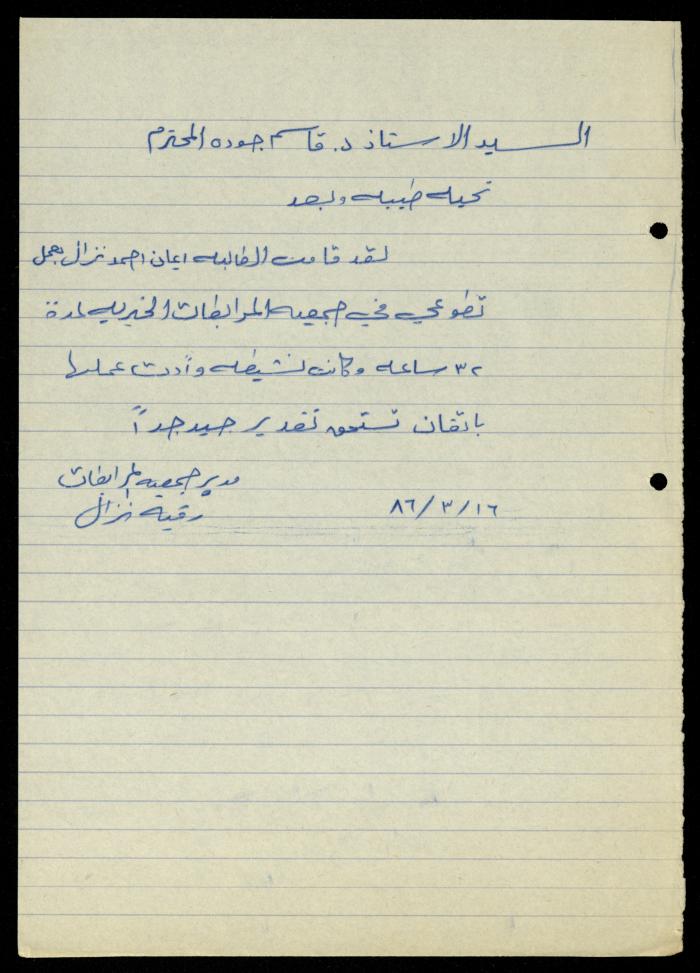 السيد الاستاذ د. قاسم جوده المحترم
تحيه طيبه وبعد
لقد قامت الطالبه ايمان احمد نزال بعمل
تطوعي في جمعيه المرابطات الخيريه لمدة
٣٢ ساعه وكانت نشيطه وأدت عملها
باتقان تستحق تقدير جيد جداً
مدير جمعيه المرابطات
رقيه نزال
٨٦/٣/١٦